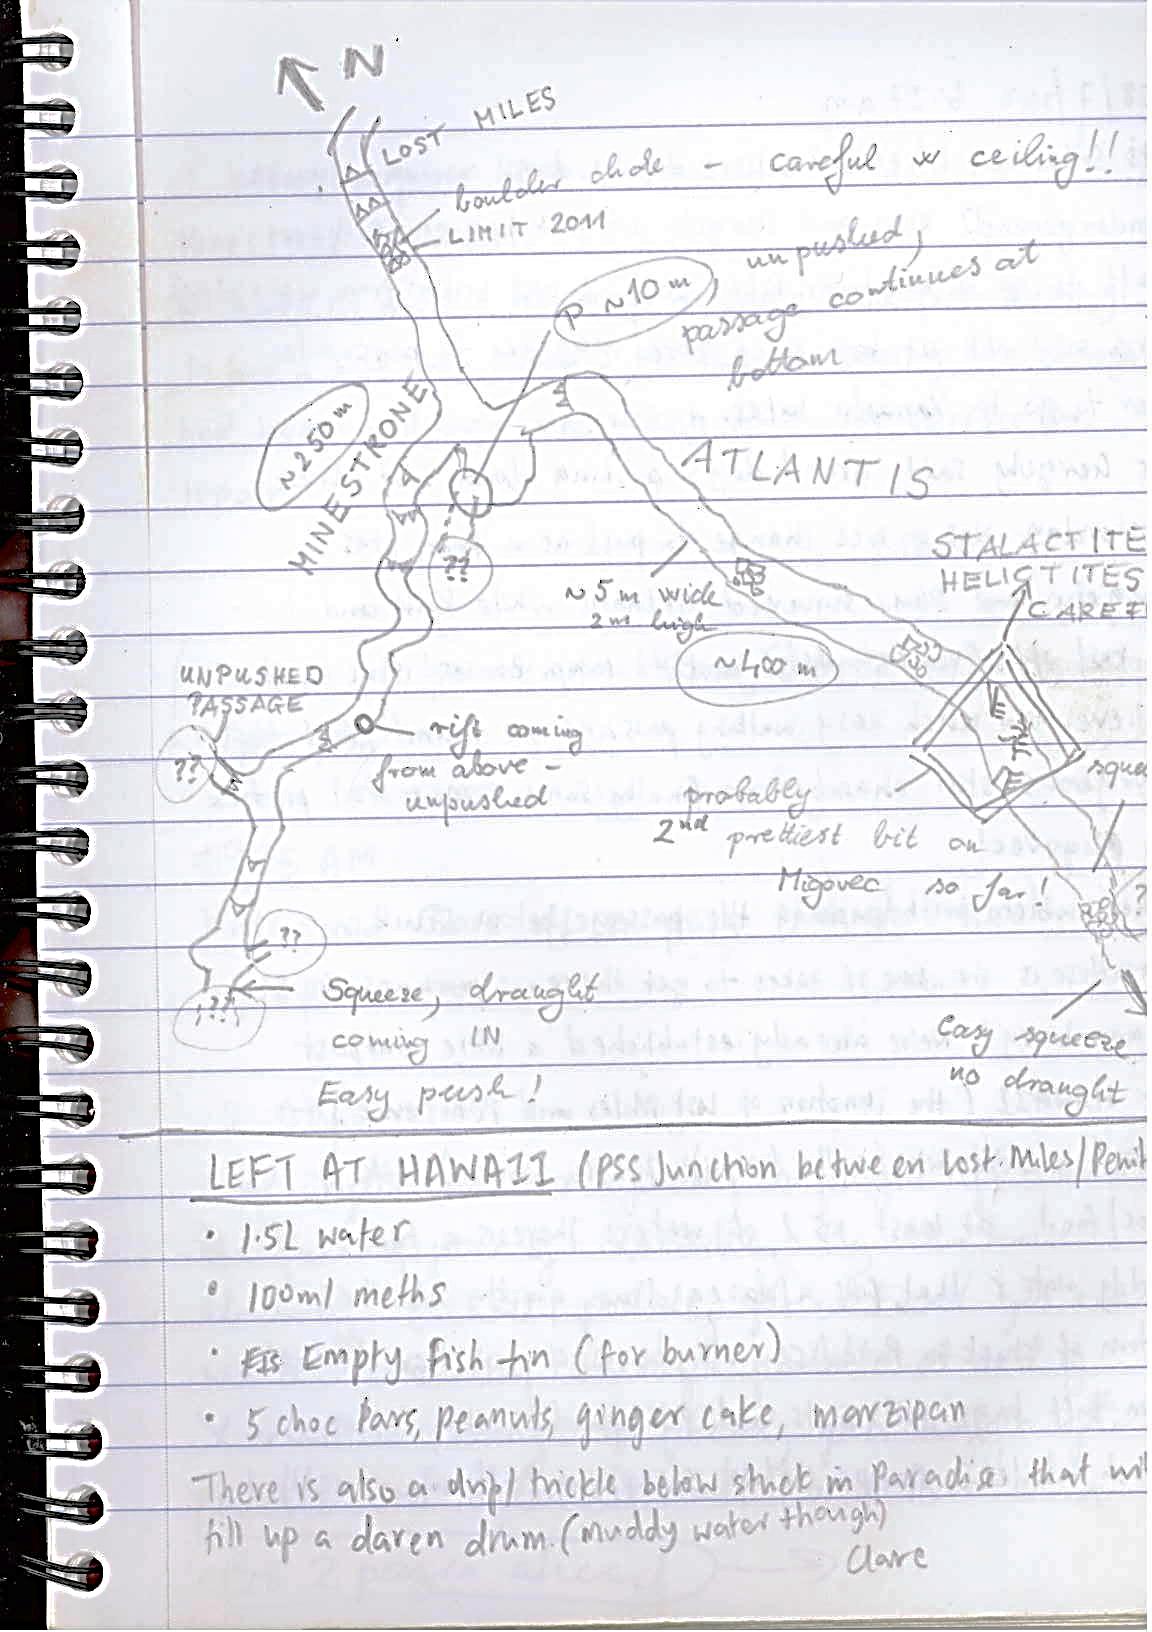 N
LOST MILES
boulder choke – careful w ceiling!!
LIMIT 2011
P ~10 m, unpushed,
passage continues at
bottom
~250 m
MINESTRONE
ATLANTIS
??
~5 m wide
2m high
~400 m
STALACTITE
HELICTITES
CAREF
UNPUSHED
PASSAGE
??
rift coming
from above –
unpushed
probably
2nd prettiest bit on
Migovec so far!
squee
??
???
Squeeze, draught
coming IN
Easy push!
Easy squeeze
no draught
LEFT AT HAWAII (PSS Junction between Lost Miles/Penit
• 1.5L water
• 100ml meths
• Empty fish tin (for burner)
• 5 choc bars, peanuts, ginger cake, marzipan
There is also a drip/trickle below stuck in Paradise that wi
fill up a daren drum. (muddy water though)
Claire